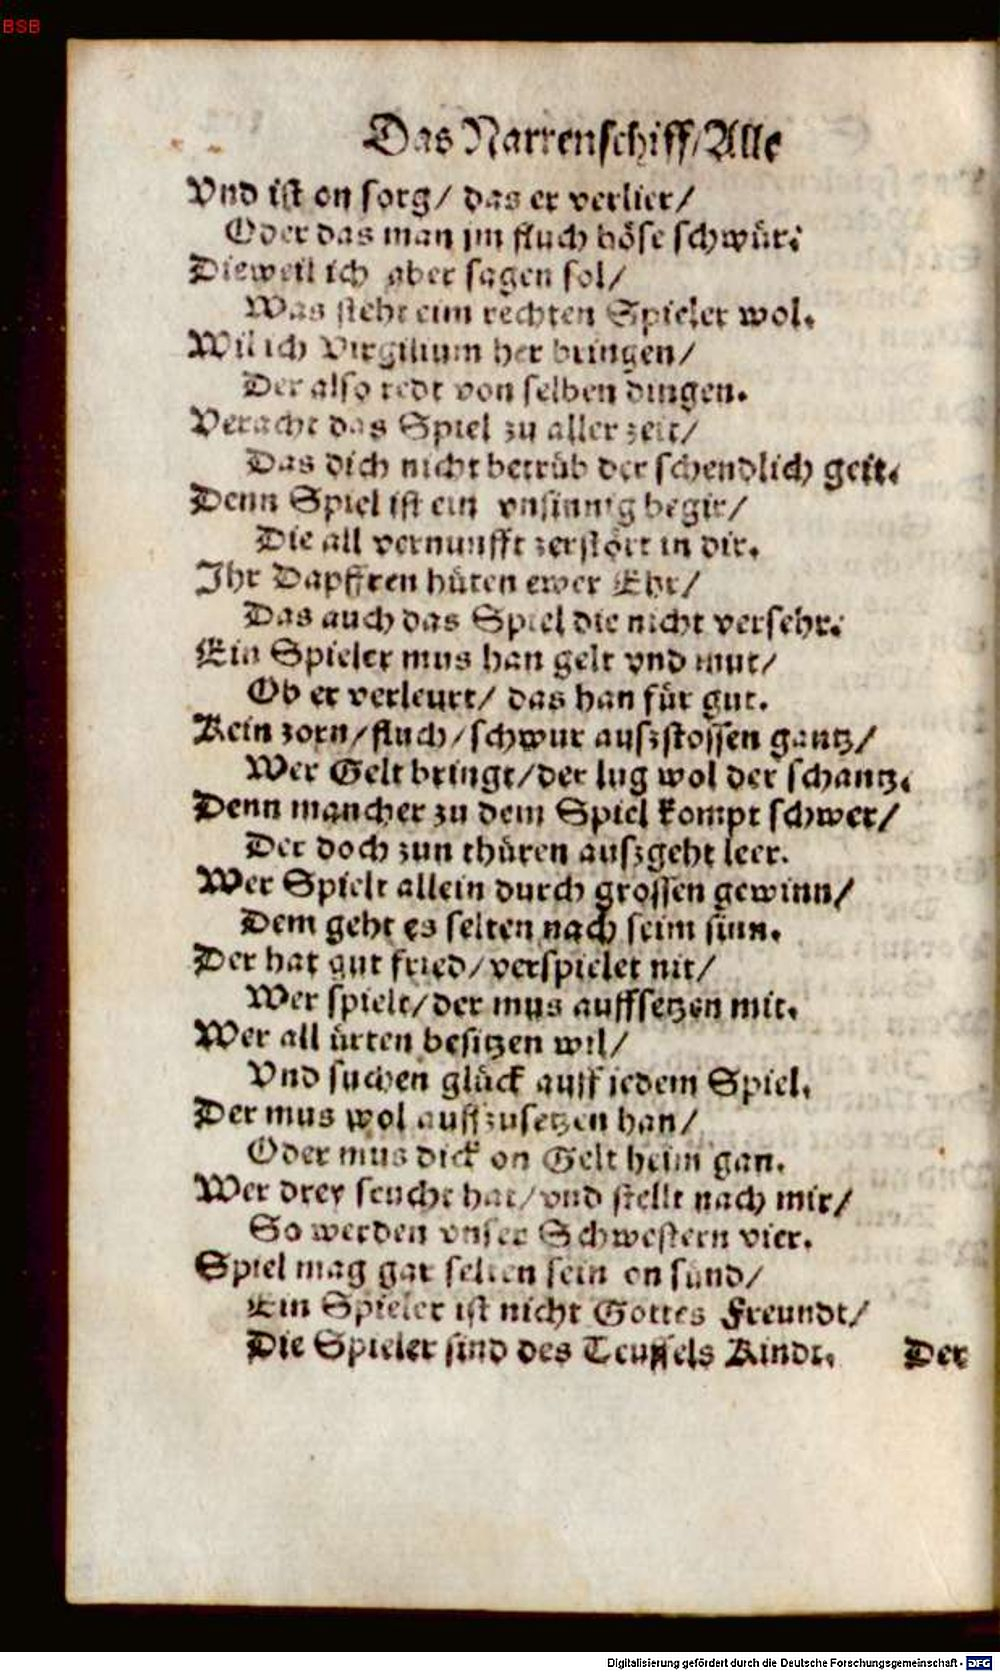 BSB
Das Narrenschiff/Alle
Vnd ist on sorg/ das er verlier/
Oder das man jm fluch böse schwür:
Dieweil ich aber sagen sol/
Was steht eim rechten Spieler wol.
Wil ich Virgilium her bringen/
Der also redt von selben dingen.
Veracht das Spiel zu aller zeit/
Das dich nicht betrüb der schendlich geit.
Denn Spiel ist ein vnsinnig begir/
Die all vernunfft zerstört in dir.
Ihr Dapffren hüten ewer Ehr/
Das auch das Spiel die nicht versehr:
Ein Spieler mus han gelt vnd mut/
Ob er verleurt/ das han für gut.
Kein zorn/fluch/schwur auszstossen gantz/
Wer Gelt bringt/der lug wol der schantz.
Denn mancher zu dem Spiel kompt schwer/
Der doch zun thüren auszgeht leer.
Wer Spielt allein durch grossen gewinn/
Dem geht es selten nach seim sinn.
Der hat gut fried/verspielet nit/
Wer spielt/der mus auffsetzen mit.
Wer all ürten besitzen wil/
Vnd suchen glück auff jedem Spiel.
Der mus wol auffzusetzen han/
Oder mus dick on Gelt heim gan.
Wer drey seucht hat/vnd stellt nach mir/
So werden vnser Schwestern vier.
Spiel mag gar selten sein on sünd/
Ein Spieler ist nicht Gottes Freundt/
Die Spieler sind des Teuffels Kindt. Der
Digitalisierung gefördert durch die Deutsche Forschungsgemeinschaft - DFG